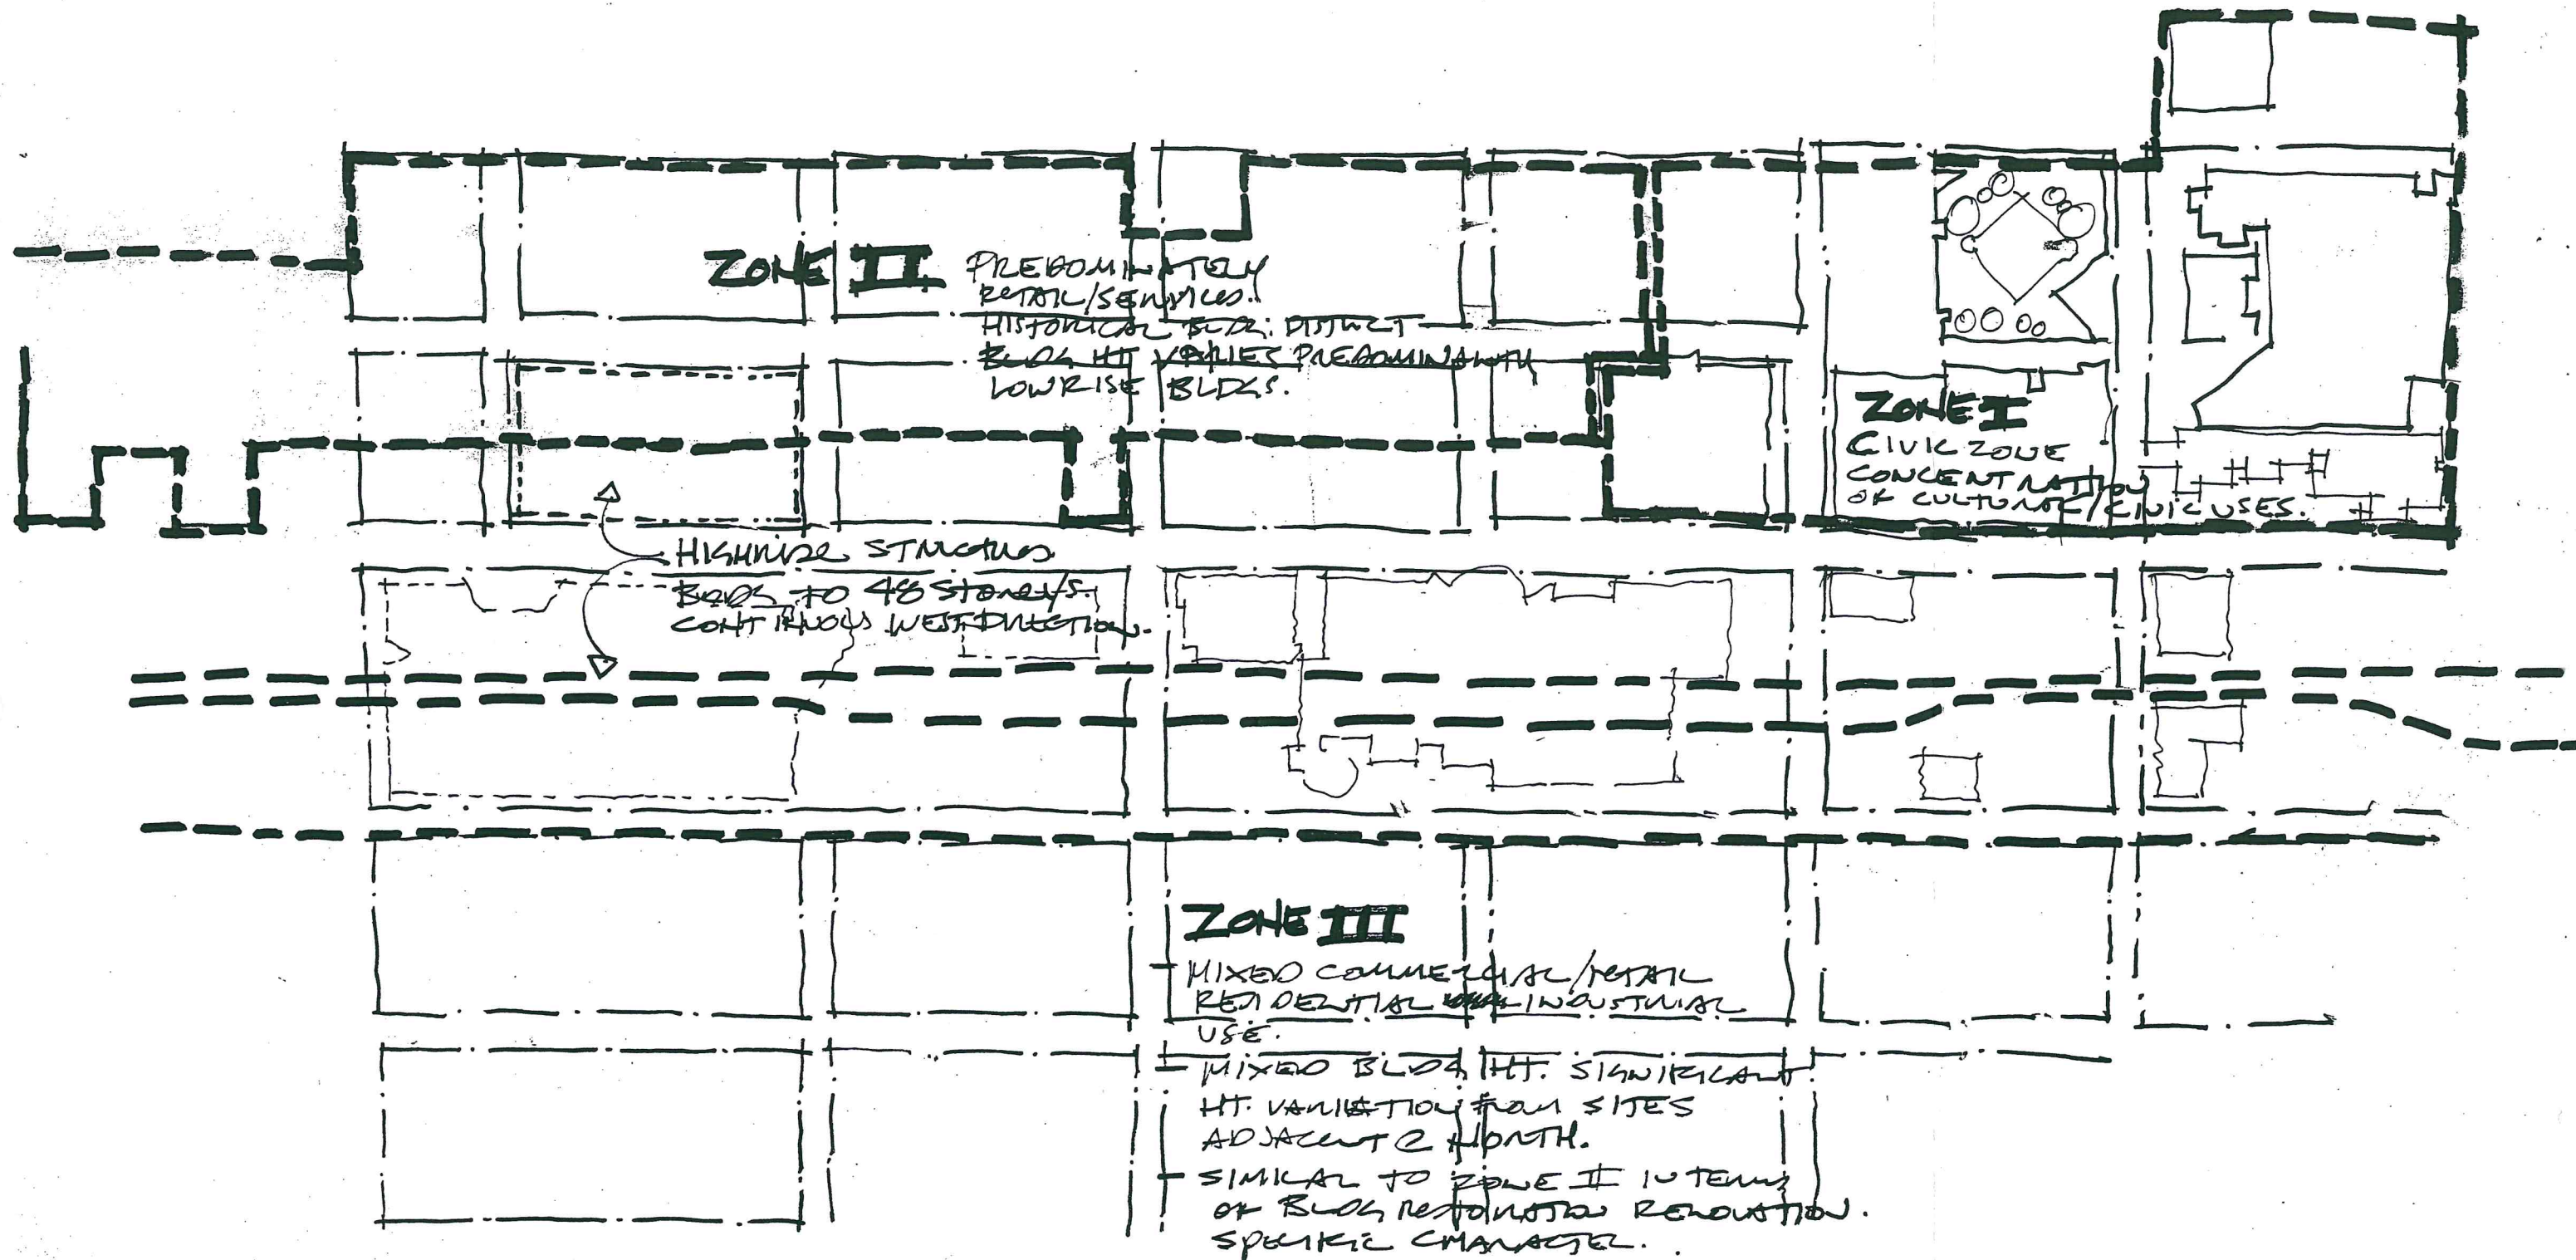 ZONE II
PREDOMINATELY
RETAIL/SERVICES.
HISTORICAL BLDG. DISTRICT
BLDG HT VARIES PREDOMINANTLY
LOWRISE BLDGS.
ZONE I
CIVIC ZONE
CONCENTRATION
OF CULTURAL/CIVIC USES.
HIGHRISE STRUCTURES
BLDGS TO 48 STOREYS.
CONTINUOUS WEST DIRECTION.
ZONE III
- MIXED COMMERCIAL/RETAIL
RESIDENTIAL INDUSTRIAL
USE.
- MIXED BLDG HT. SIGNIFICANT
HT. VARIATION FROM SITES
ADJACENT @ NORTH.
- SIMILAR TO ZONE II IN TERMS
OF BLDG RESTORATION RENOVATION.
SPECIFIC CHARACTER.